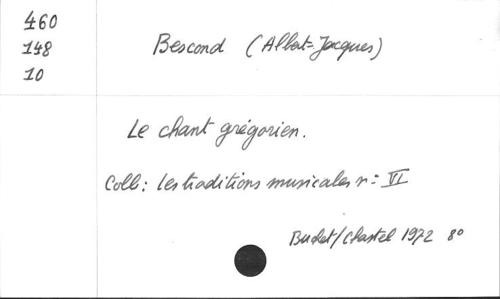 460
148
10
Bescond (Albert-Jacques)
Le chant grégorien.
Coll: Les traditions musicales n= VI
Buchet/Chastel 1972 8º